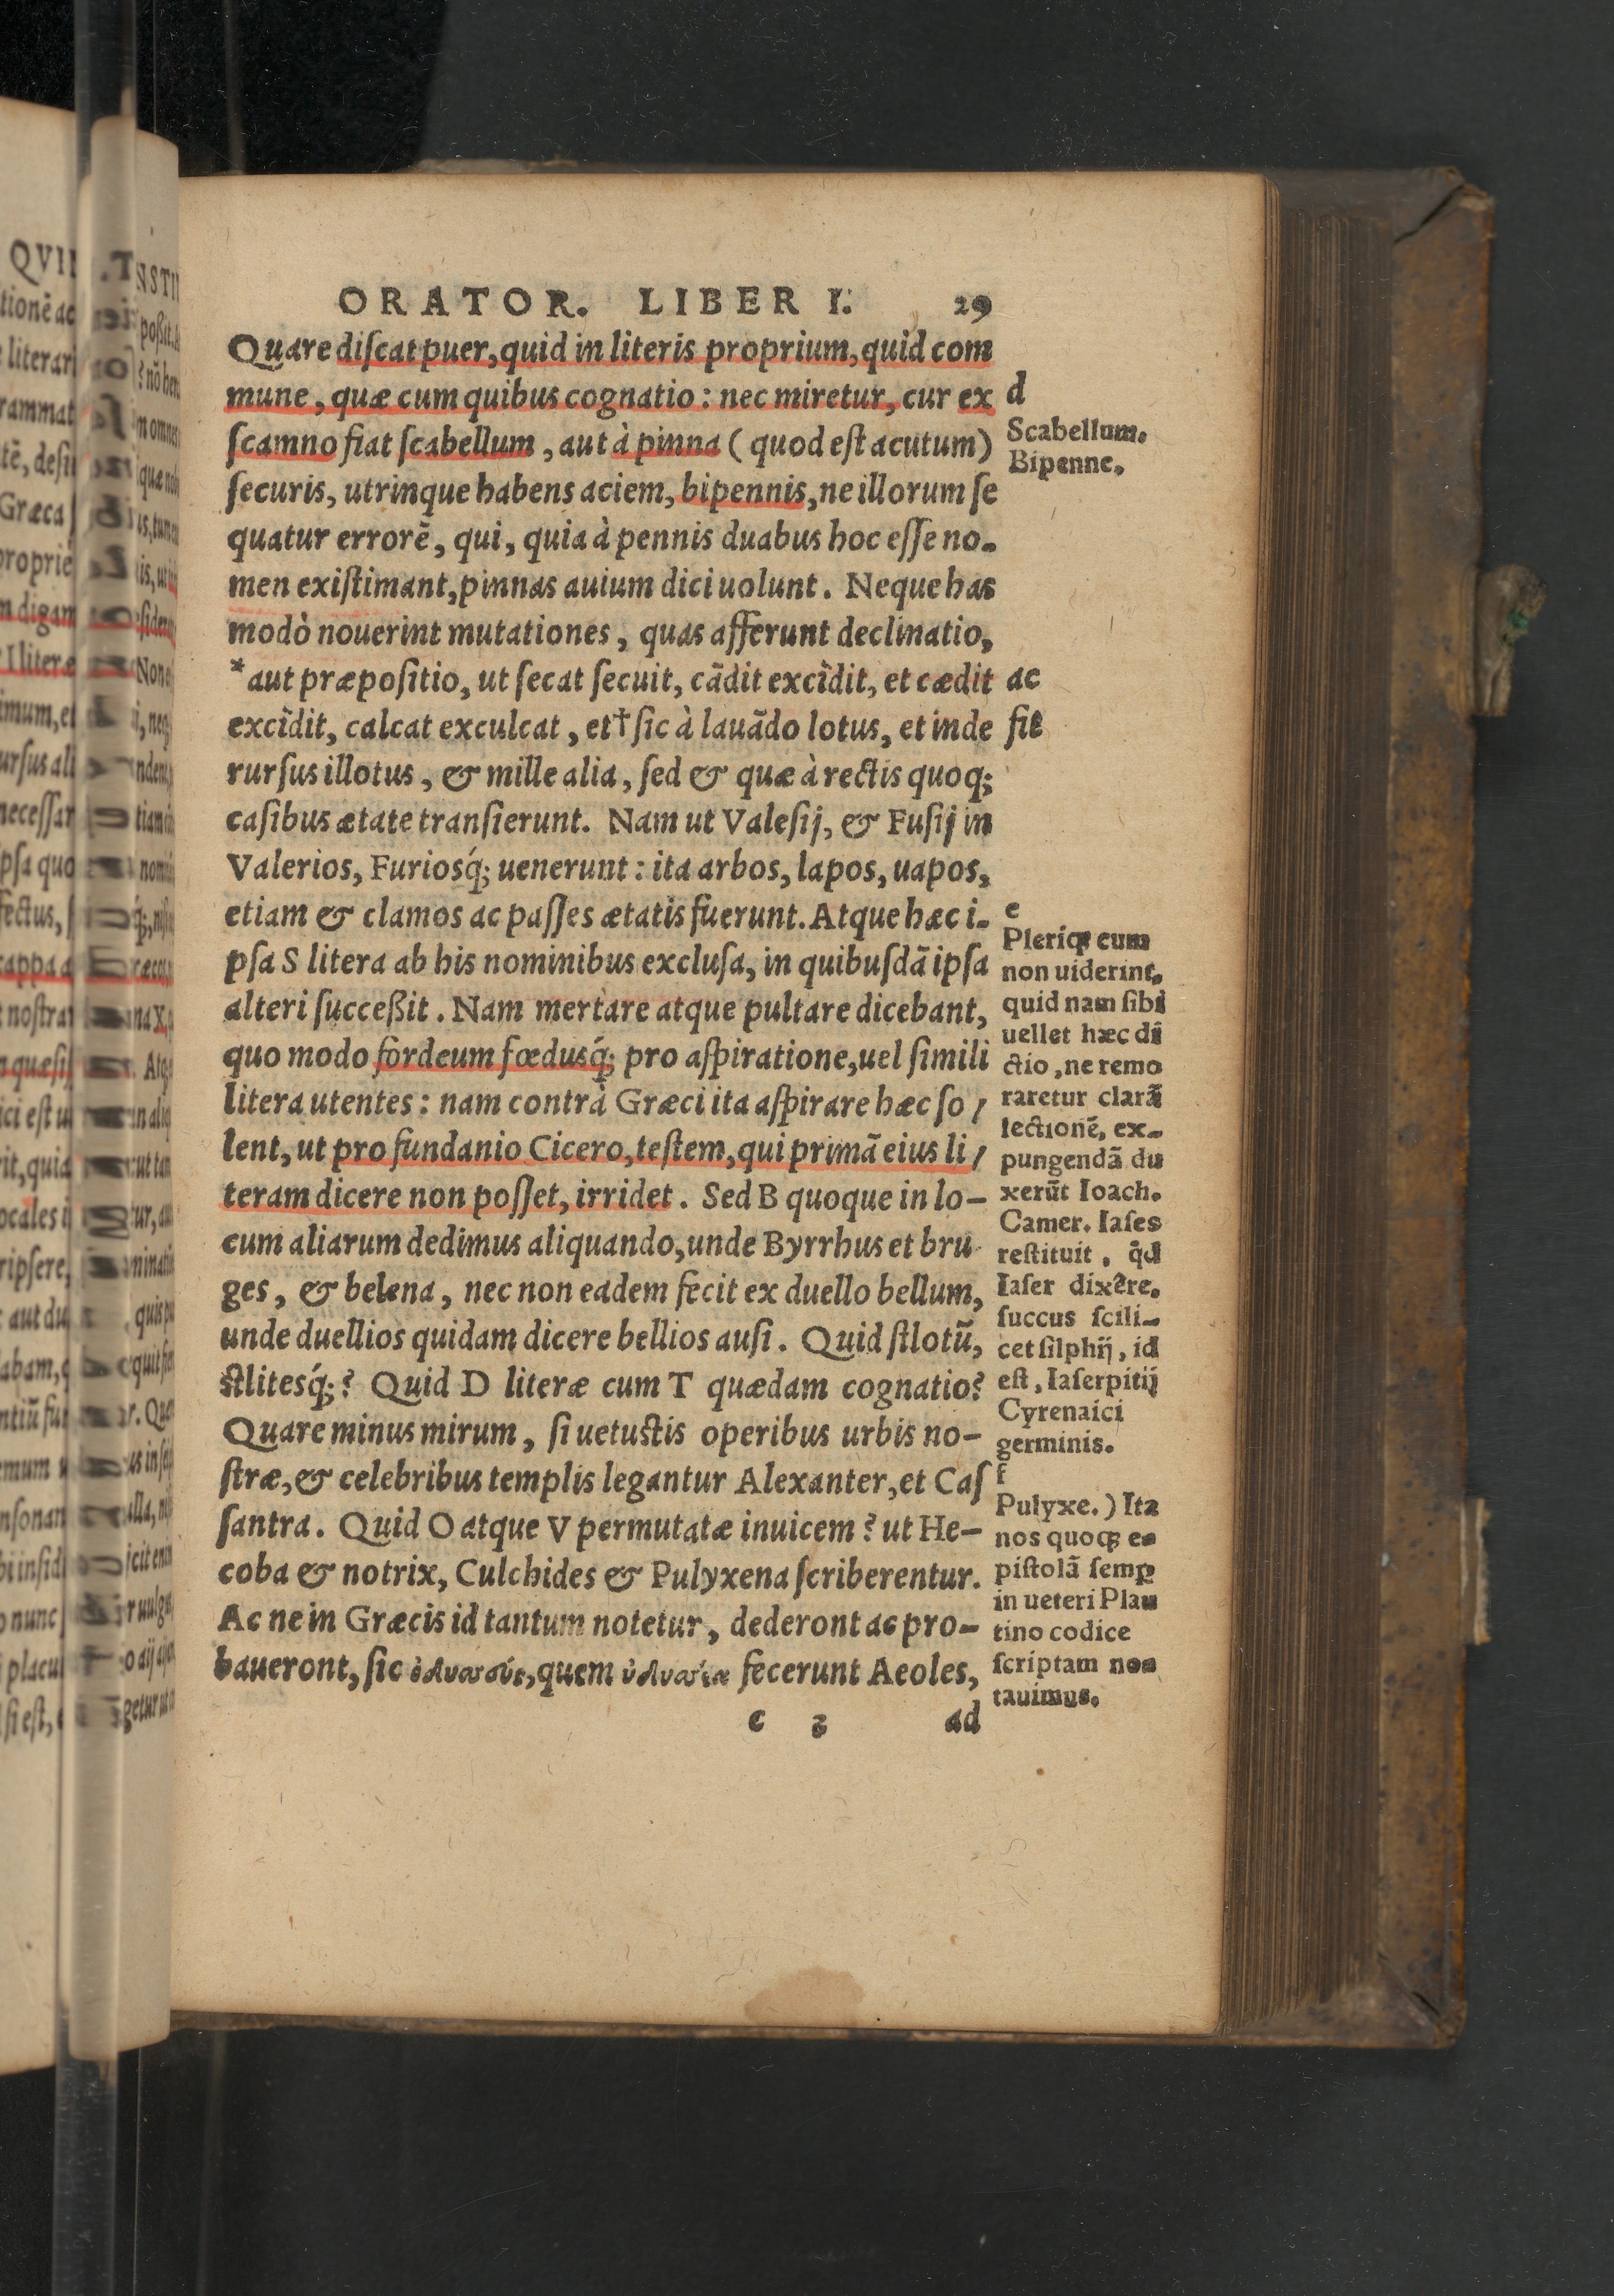 ORATOR. LIBER I. 29
Quare diſcat puer, quid in literis proprium, quid com
mune, quæ cum quibus cognatio: nec miretur, cur ex
ſcamno fiat ſcabellum, aut à pinna (quod eſt acutum)
ſecuris, utrinque habens aciem, bipennis, ne illorum ſe
quatur errorē, qui, quia à pennis duabus hoc eſſe no-
men exiſtimant, pinnas auium dici uolunt. Neque has
modò nouerint mutationes, quas afferunt declinatio,
*aut præpoſitio, ut ſecat ſecuit, cādit excîdit, et cædit
excîdit, calcat exculcat, et† ſic à lauādo lotus, et inde
rurſus illotus, & mille alia, ſed & quæ à rectis quoq;
caſibus ætate tranſierunt. Nam ut Valeſij, & Fuſij in
Valerios, Furiosq́; uenerunt: ita arbos, lapos, uapos,
etiam & clamos ac paſſes ætatis fuerunt. Atque hæc i-
pſa S litera ab his nominibus excluſa, in quibuſdā ipſa
alteri ſucceßit. Nam mertare atque pultare dicebant,
quo modo fordeum fœdusq́; pro aſpiratione, uel ſimili
litera utentes: nam contrà Græci ita aſpirare hæc ſo/
lent, ut pro fundanio Cicero, teſtem, qui primā eius li/
teram dicere non poſſet, irridet. Sed B quoque in lo-
cum aliarum dedimus aliquando, unde Byrrhus et bru
ges, & belena, nec non eadem fecit ex duello bellum,
unde duellios quidam dicere bellios auſi. Quid ſtlotū,
ſtlitesq́;? Quid D literæ cum T quædam cognatio?
Quare minus mirum, ſi uetuſtis operibus urbis no-
ſtræ, & celebribus templis legantur Alexanter, et Caſ
ſantra. Quid O atque V permutatæ inuicem? ut He-
coba & notrix, Culchides & Pulyxena ſcriberentur.
Ac ne in Græcis id tantum notetur, dederont ac pro-
baueront, ſic ὀδυσσεύς, quem fecerunt Aeoles,
c 3 ad
d
Scabellum.
Bipenne.
ac
fit
e
Pleriq; cum
non uiderint,
quid nam ſibi
uellet hæc di
ctio, ne remo
raretur clarā
lectionē, ex-
pungendā du
xerūt Ioach.
Camer. Iaſes
reſtituit, q̄d
Iaſer dixêre.
ſuccus ſcili-
cet ſilphij, id
eſt, Iaſerpitij
Cyrenaici
germinis.
f
Pulyxe.) Ita
nos quoq; e-
piſtolā ſemp
in ueteri Plau
tino codice
ſcriptam no-
tauimus.